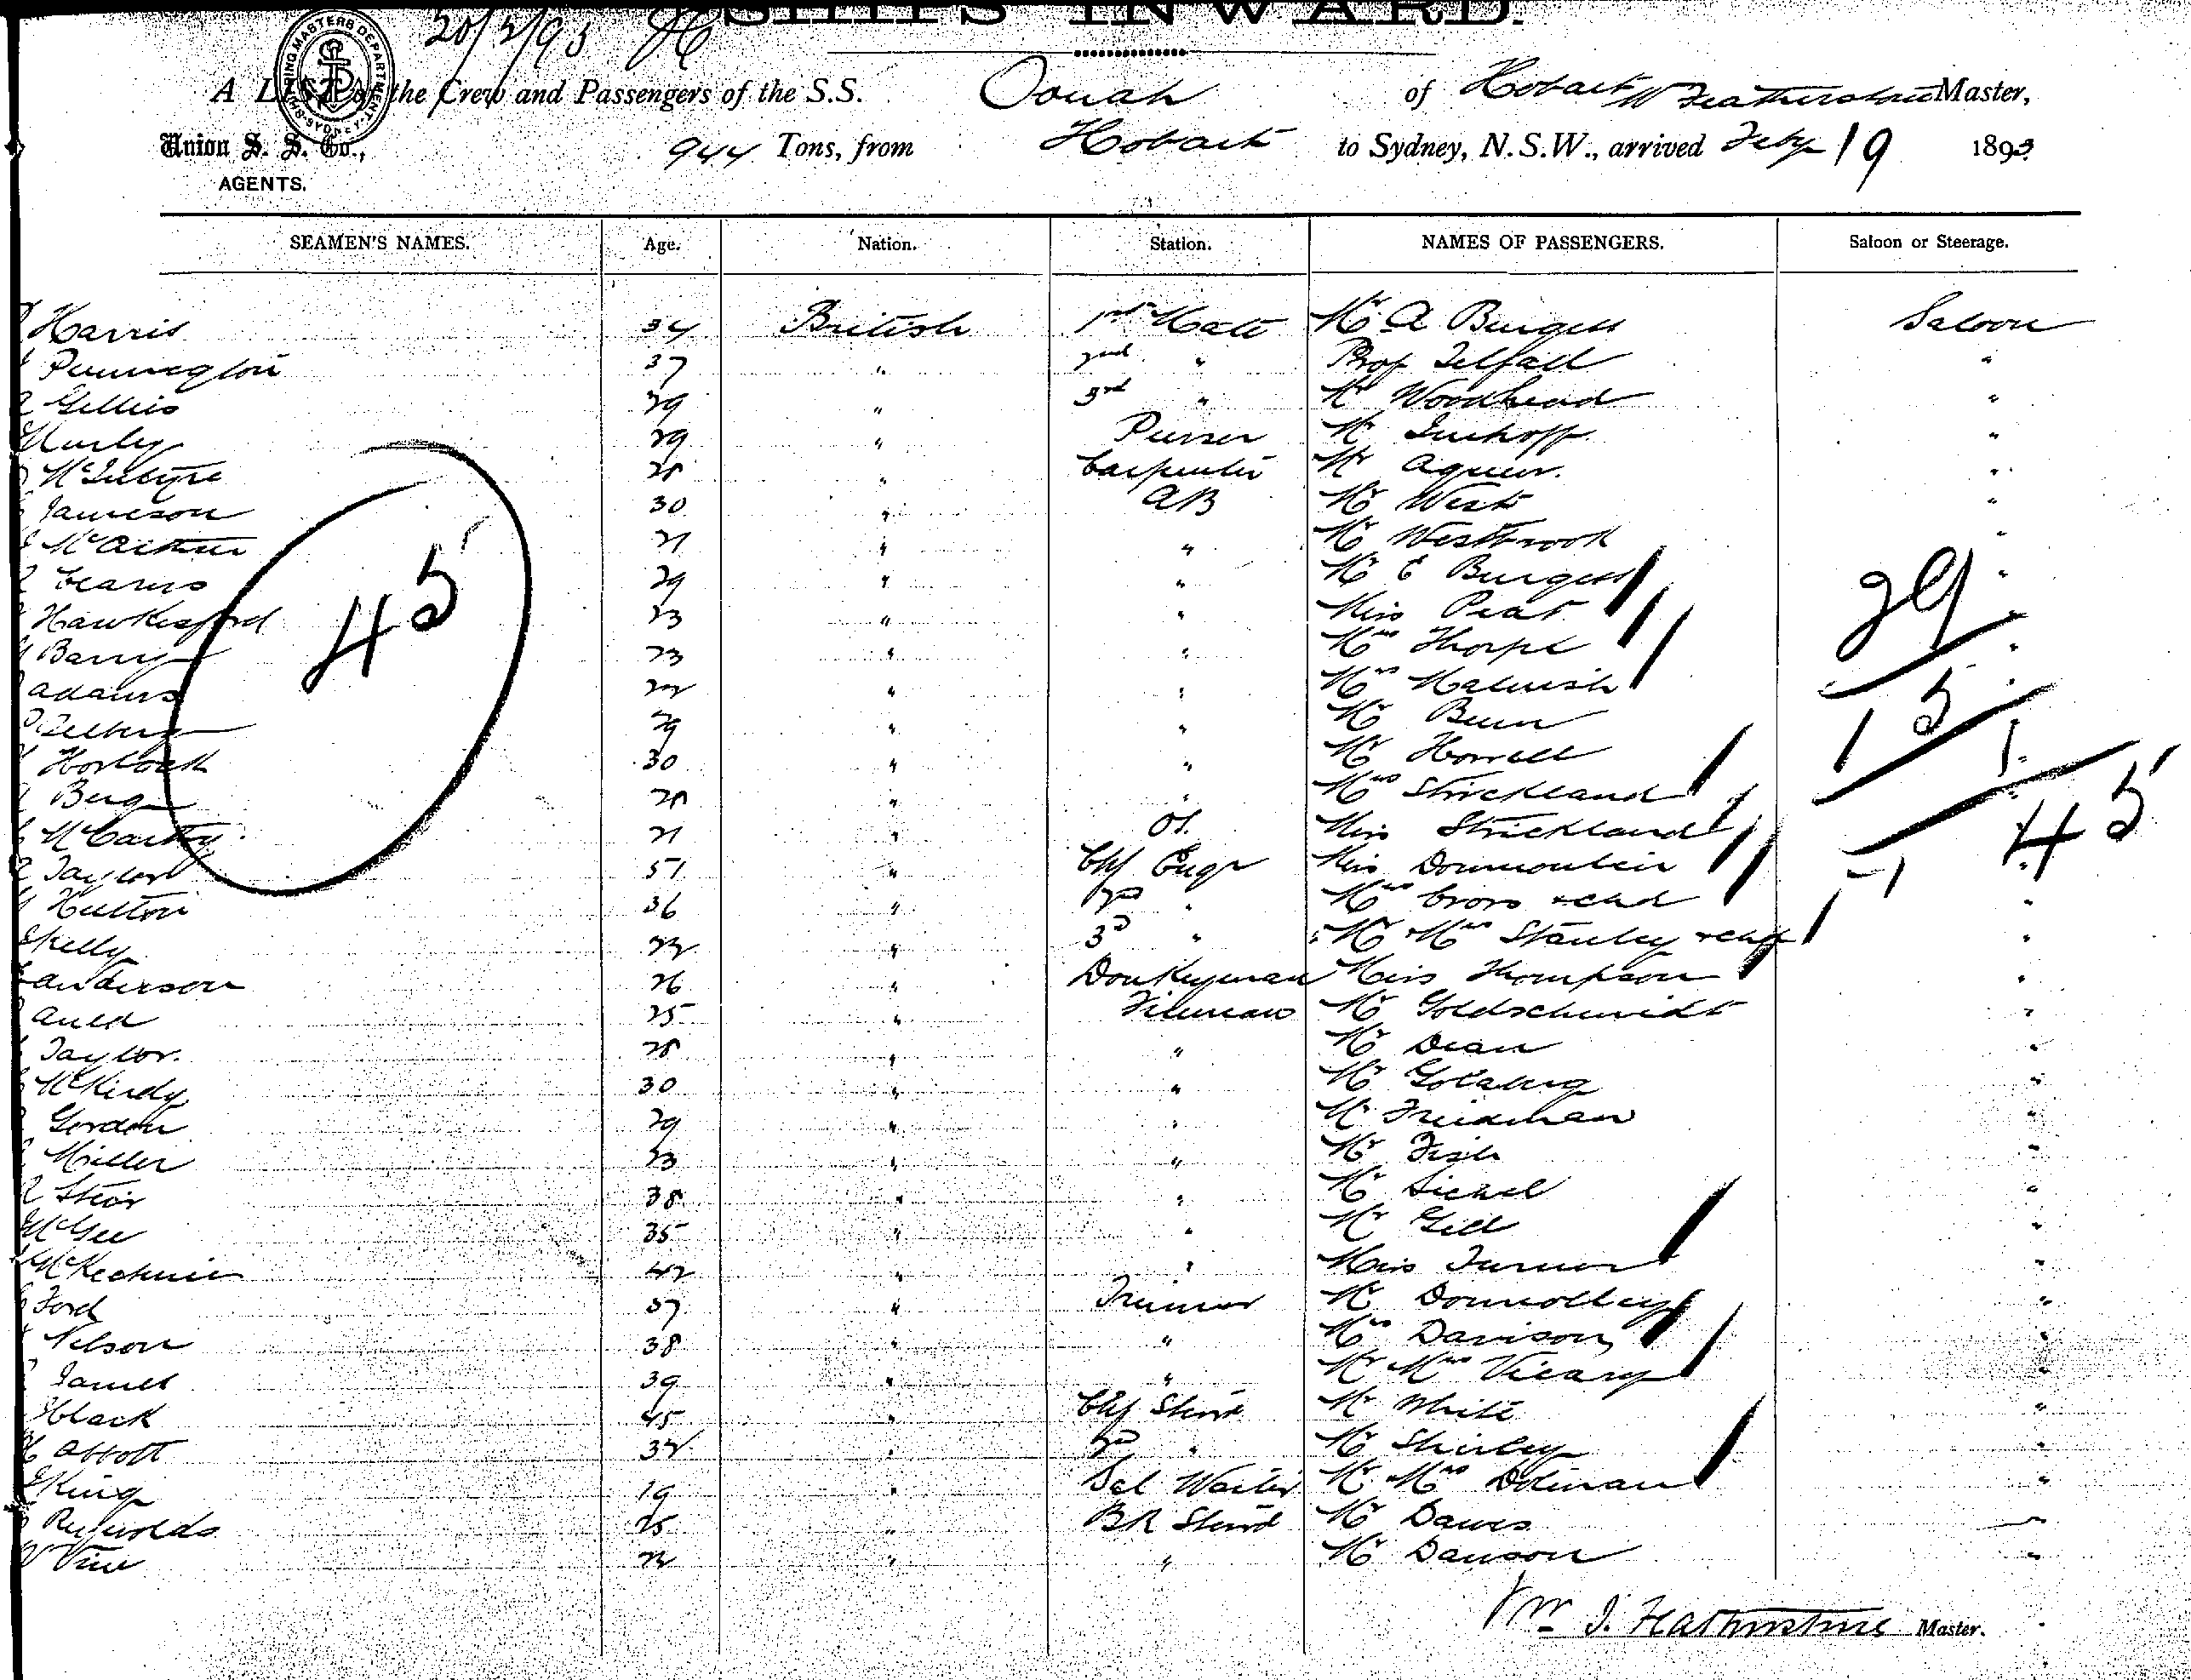 SHIPS INWARD.
20/2/93
SHIPPING MASTERS DEPARTMENT SYDNEY
A LIST of the Crew and Passengers of the S.S. Oonah of Hobart W Featherstone Master,
Union S. S. Co., 944 Tons, from Hobart to Sydney, N.S.W., arrived Feby 19 1893
AGENTS.
SEAMEN'S NAMES. Age. Nation. Station. NAMES OF PASSENGERS. Saloon or Steerage.
Harris 34 British 1st Mate Mr A Burgess Saloon
Pennington 37 " 2nd " Prof Telfall "
Gillies 29 " 3rd " Mr Woodhead "
Hurley 29 " Purser Mr Imhoff "
McIntyre 28 " Carpenter Mr Agnew "
Jameson 30 " AB Mr West "
McArthur 21 " " Mr Westbrook "
Cearns 29 " " Mr E Burgess "
Hawkesford 23 " " Miss Peat "
Barry 23 " " Mrs Thorpe "
Adams 22 " " Mrs "
29 " " Mr Bunn
30 " " Mr Horrell
Berg 28 " " Mrs Strickland
McCarthy 21 " OS. Miss Strickland
Taylor 51 " Chf Engr Miss
Hutton 36 " 2nd " Mrs Cross & chd "
Skelly 22 " 3rd " Mr & Mrs Stanley & chd "
Anderson 26 " Donkeyman Miss Thompson "
Auld 25 " Fireman Mr Goldschmidt "
Taylor. 28 " " Mr Dean "
McKirdy 30 " " Mr Goldberg "
Gordon 29 " " Mr Friedman "
Miller 23 " " Mr Fish "
38 " " Mr Sichel "
McGee 35 " " Mr Gill "
McKechnie 42 " " Miss Turner "
Ford 37 " Trimmer Mr Donnolley "
Nelson 38 " " Mrs Davison "
James 39 " " Mr & Mrs Vicary "
Black 45 " Chf Stewd Mr White "
Abbott 32 " 2nd " Mr Shirley "
King 19 " Sal Waiter Mr & Mrs Dolman "
Reynolds 25 " BR Stewd Mr Dawes "
Vine 22 " " Mr Dawson "
45
29
15
1
45
Wm J. Featherstone Master.